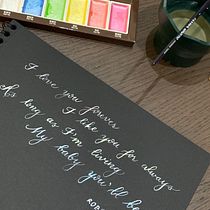 I love you forever
I like you for always
As long as I'm living
My baby you'll be